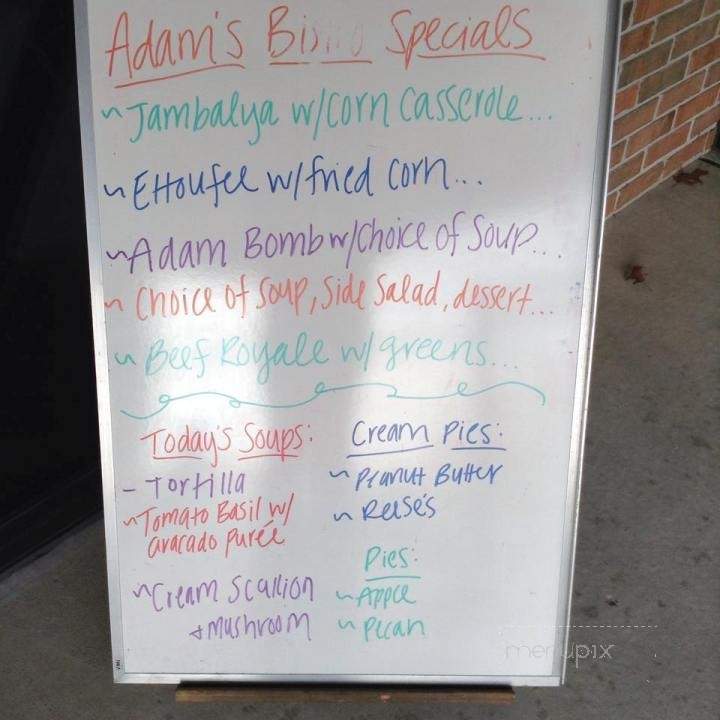 Adam's Bistro Specials
~ Jambalya w/corn casserole...
~ Ettoufee w/fried corn...
~ Adam Bomb w/Choice of Soup...
~ Choice of Soup, Side Salad, dessert...
~ Beef Royale w/ greens...
Today's Soups:
- Tortilla
~ Tomato Basil w/
avacado purée
~ Cream Scallion
+ mushroom
Cream Pies:
~ Peanut Butter
~ Reese's
Pies:
~ Apple
~ Pecan
menupix